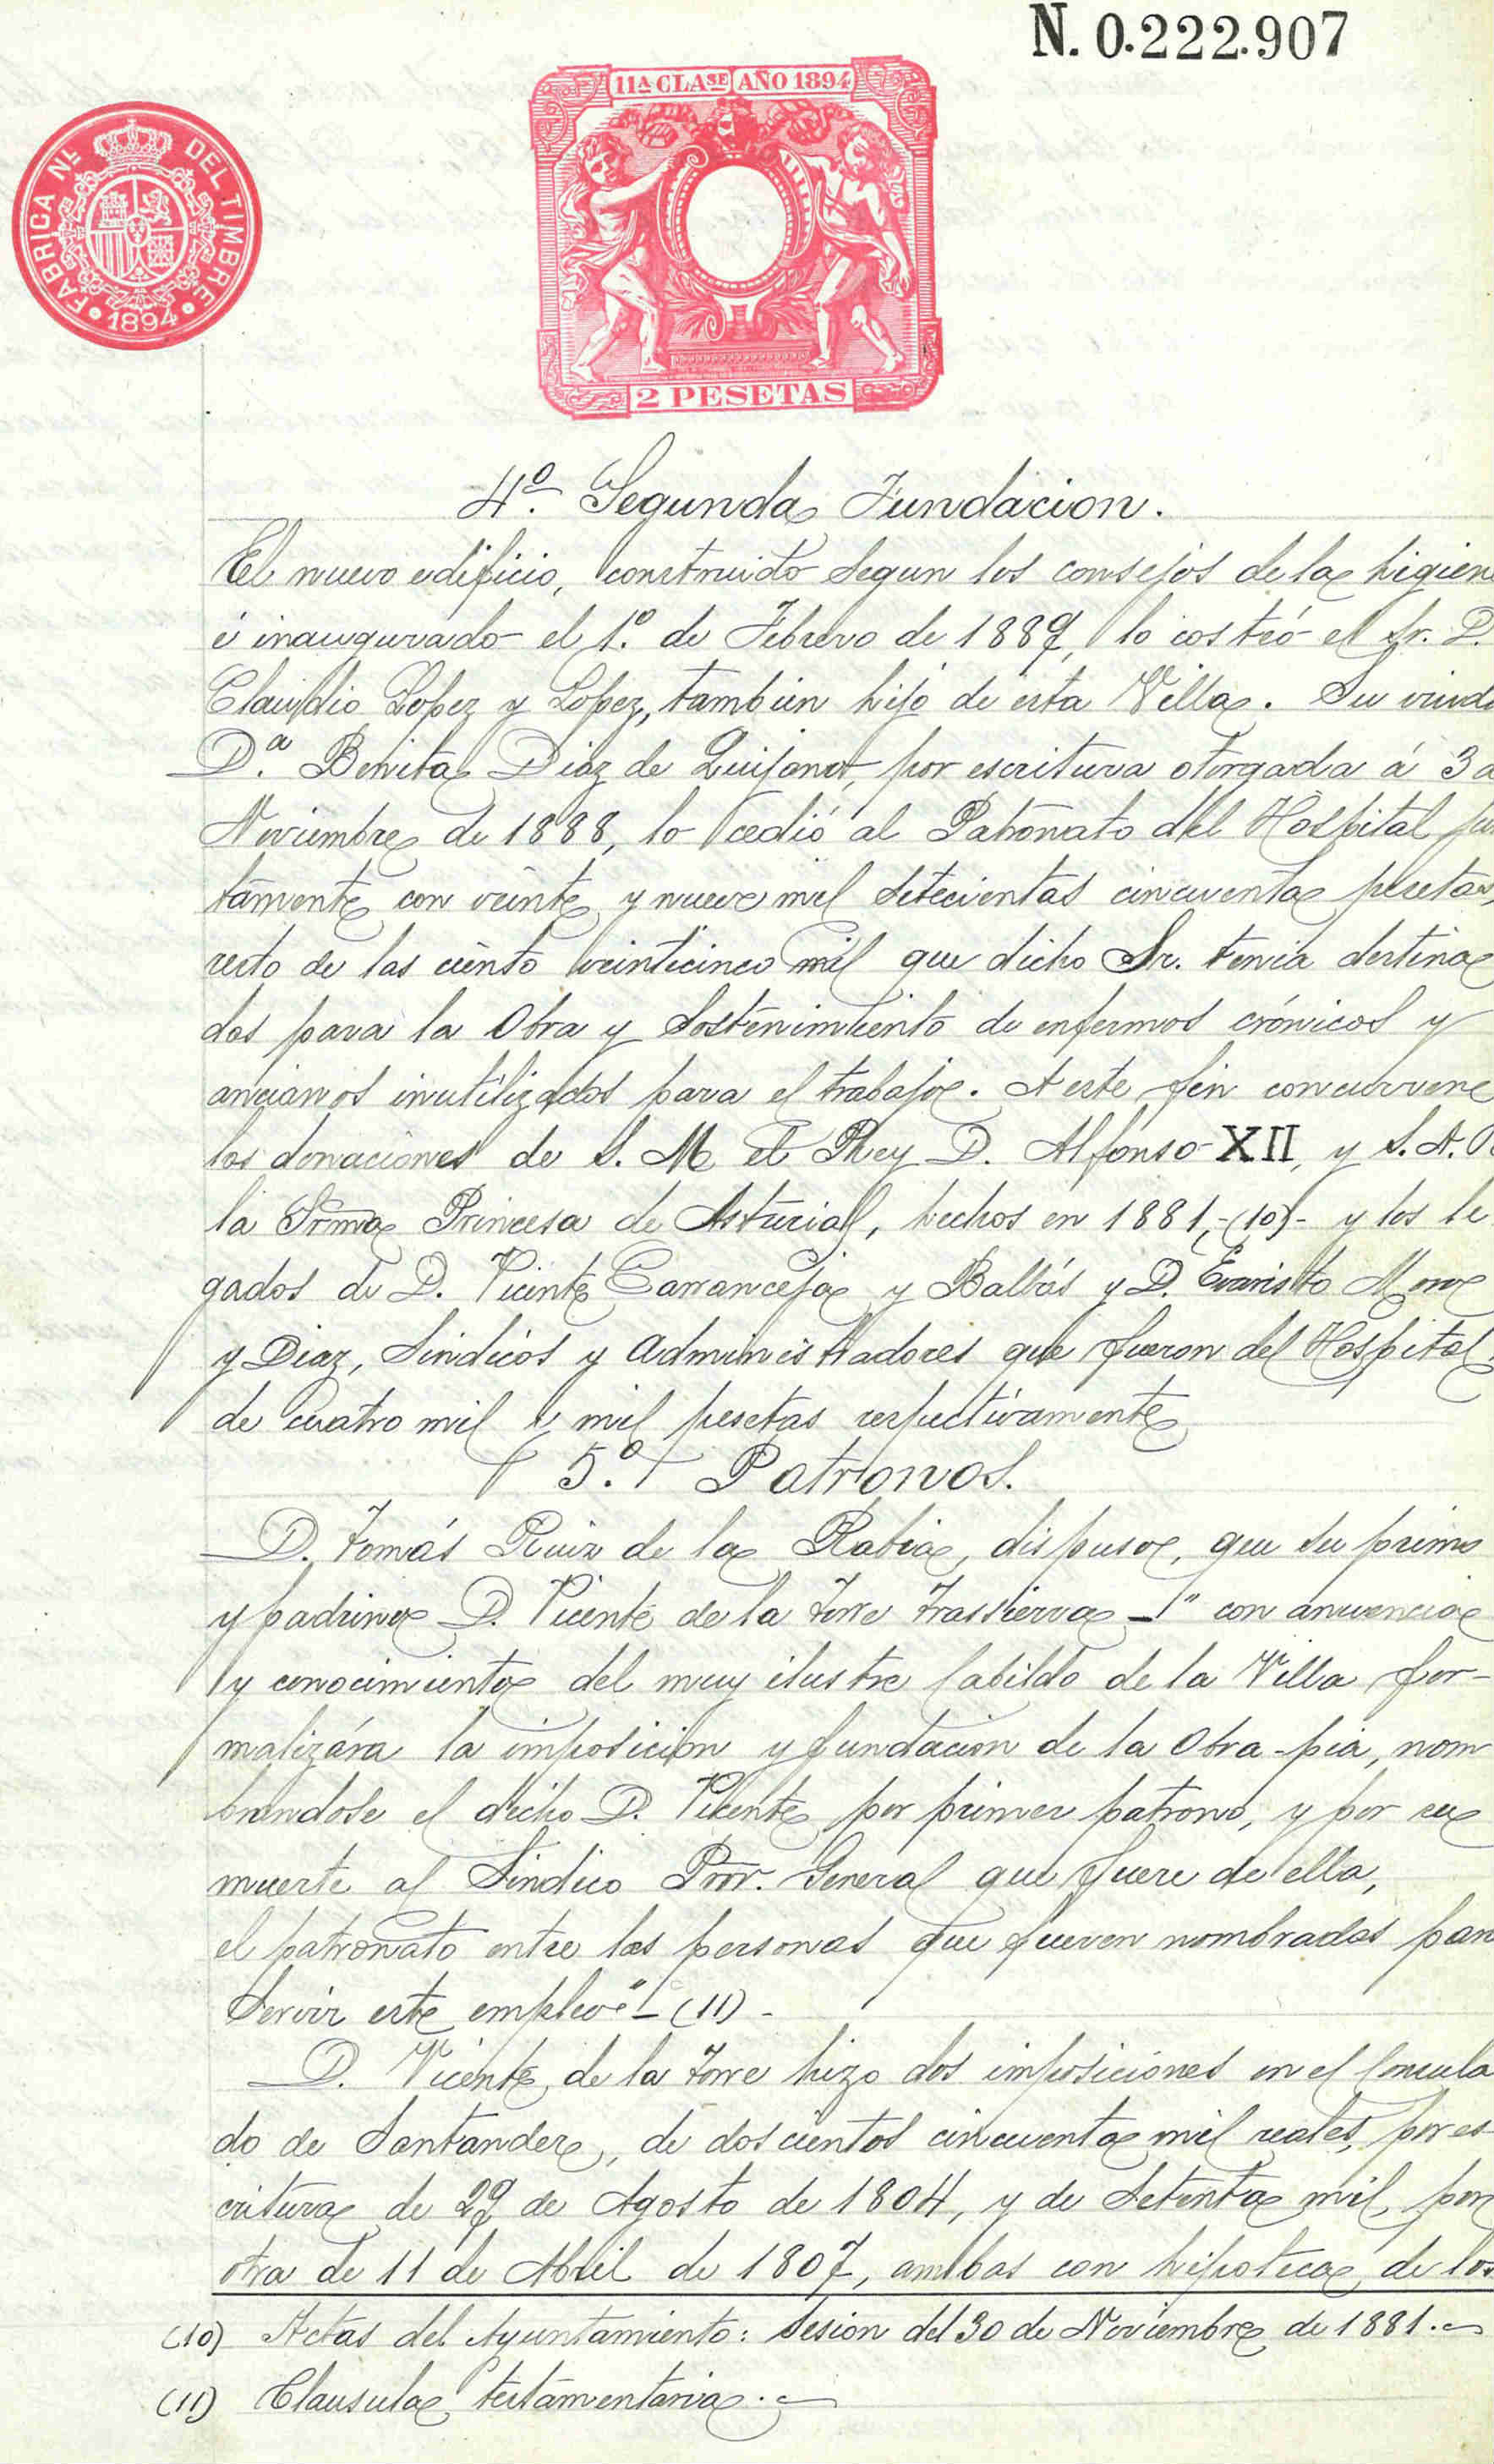 N. 0.222.907
11A CLASE AÑO 1894
FABRICA NL. DEL TIMBRE
1894
2 PESETAS
4º. Segunda Fundacion.
El nuevo edificio, construido segun los consejos de la higien
é inaugurado el 1º. de Febrero de 1889, lo costeó el Sr. D.
Claudio Lopez y Lopez, tambien hijo de esta Villa. Su viud
D.ª Benita Diaz de Quijano, por escritura otorgada á 3 d
Noviembre de 1888, lo cedió al Patronato del Hospital jun
tamente con veinte y nueve mil setecientas cincuenta pesetas,
resto de las ciento veinticinco mil que dicho Sr. tenia destina
das para la Obra y sostenimiento de enfermos crónicos y
ancianos inutilizados para el trabajo. A este fin concurren
las donaciones de S. M. el Rey D. Alfonso XII, y S. A. R
la Srma Princesa de Asturias, hechos en 1881,-(10)- y los le
gados de D. Vicente Carranceja y Balbás y D. Evaristo Mora
y Diaz, Sindicos y Administradores que fueron del Hospital,
de cuatro mil y mil pesetas respectivamente
5.º Patronos.
D. Tomás Ruiz de la Rabia, dispuso, que su primo
y padrino D. Vicente de la Torre Trassierra -" con anuencia
y conocimiento del muy ilustre Cabildo de la Villa for-
malizára la imposicion y fundacion de la Obra-pia, nom
brandose el dicho D. Vicente por primer patrono, y por su
muerte al Sindico Pror. General que fuere de ella,
el patronato entre las personas que fueren nombradas par
servir este empleo"-(11)-
D. Vicente de la Torre hizo dos imposiciones en el Consula
do de Santander, de doscientos cincuenta mil reales, por es
critura de 29 de Agosto de 1804, y de setenta mil, por
otra de 11 de Abril de 1807, ambas con hipoteca de los
(10) Actas del Ayuntamiento: sesion del 30 de Noviembre de 1881.
(11) Clausula testamentaria.